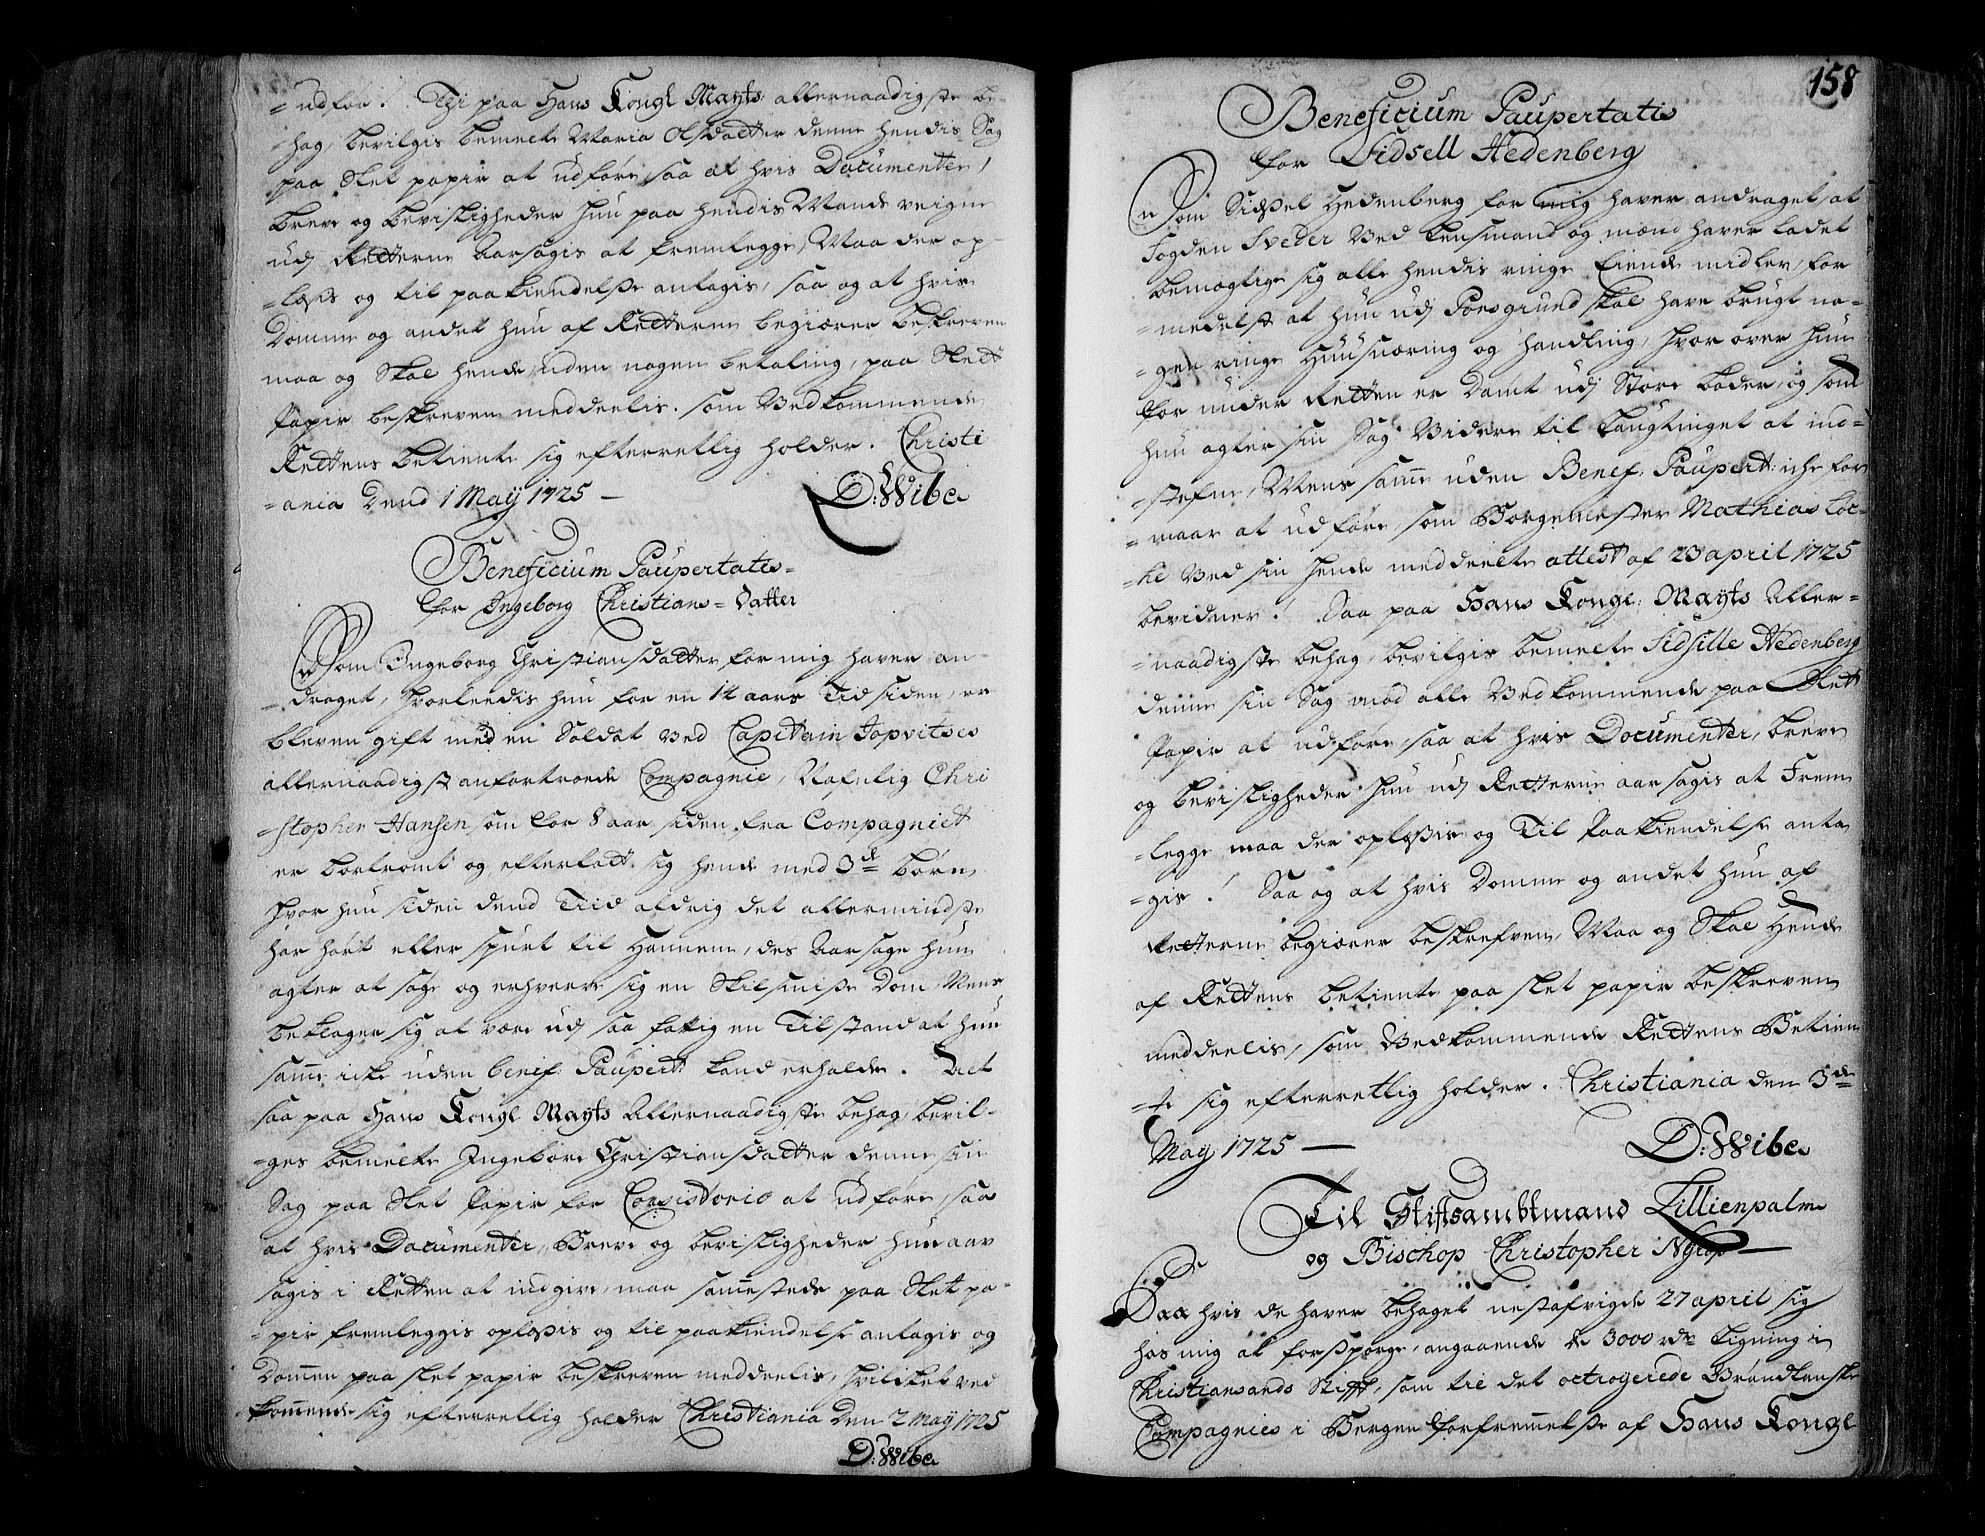 =udför! Thi paa Hans Kongl Mayts: allernaadigste be-
=hag, bevilgis bemelte Maria Olsdatter denne hendis Sag
paa Slet papir at udföre, saa at hvis Documenter,
breve og beviisligheder hun paa hendis Mands veigne
udj Retterne aarsagis at fremlegge, Maa der op-
=læsis og til paakiendelse antagis, saa og at hvis
Domme og andet hun af Retterne begierer beskreven
maa og Skal hende, uden nogen betaling, paa Slett
Papir beskreven meddeelis. som Vedkommende
Rettens betiente sig efterrettlig holder. Christi
=ania Dend 1 Maij 1725 —
D: Wibe
Beneficium Paupertatis=
for Ingeborg Christians=Datter
Som Ingeborg Christiansdatter for mig haver an-
=draget, hvorleedis hun for en 14 aars Tid siden, er
bleven gift med en Soldat ved Capitain Jopvitses
allernaadigst anfortroede Compagnie, Nafnlig Chri
=stopher Hansen som for 8 aar siden fra Compagniet
er bortrömt og efterladt sig hende med 3de börn
hvor hun siden dend Tiid aldrig det allermindste
har hört eller spurt til Hannem, des Aarsage hun
agter at söge og erhverve sig en Skilsmisse Dom, Mens
beklager sig at være udj saa fattig en Tilstand at hun
samme icke uden benef: Paupert: kand erholde. Det
saa paa Hans Kongl Mayts Allernaadigste behag, bevil-
=ges bemelte Ingebore Christiansdatter denne sin
Sag paa Slet Papir for Consistorio at udföre, saa
at hvis Documenter, Breve og beviisligheder hun aar
sagis i Retten at indgive, maa sammestede paa Slet pa-
=pir fremleggis oplæsis og til paakiendelse antagis og
Dommen paa slet papir beskreven meddeelis, hvilket ved
kommende sig efterrettlig holder Christiania Den 2 maij 1725
D: Wibe
158
Beneficium Paupertatis
for Sidsell Hedenberg
Som Sidsel Hedenberg for mig haver andraget, at
Fogden Sveder Ved Lensmand og mænd haver ladet
bemægtige sig alle hendis ringe Eiende midler, for
=medelst at hun udj Porsgrund skal have brugt no-
=gen ringe Huusnæring og handling, hvor over hun
for under Retten er Dömt udj Store böder, og som
hun agter sin Sag Videre til Laugtinget at ind-
=stefne, Mens samme uden Benef: Paupert: iche for
=maar at udföre, som Borgemester Mathias Loc-
=ke Ved sin hende meddeelte attest af 23 april 1725
bevidner! Saa paa Hans Kongl: Mayts Aller-
=naadigste behag, bevilgis bemelte Sidsille Hedenberg
denne sin Sag mod alle Vedkommende paa Slet
Papir at udföre, saa at hvis Documenter, breve
og beviisligheder hun udj Retterne aarsagis at Frem
=legge, maa der oplæsis og Til Paakiendelse anta
=gis! Saa og at hvis Domme og andet hun af
Retterne begierer beskrefven, Maa og Skal Hende
af Rettens betiente paa slet papir beskreven
meddeelis, som Vedkommende Rettens Betien
=te sig efterrettlig holder. Christiania den 3de
May 1725 —
D: Wibe
Til Stiftsambtmand Lillienpalm
og Bischop Christopher Nyrop —
Paa hvis de haver behaget nestafvigde 27 april sig
hos mig at forspörge, angaaende de 3000 rdr Ligning i
Christiansands Stifft, som til det octrogerede Gröndlandske
Compagnies i Bergen forfremmelse af Hans Kongl